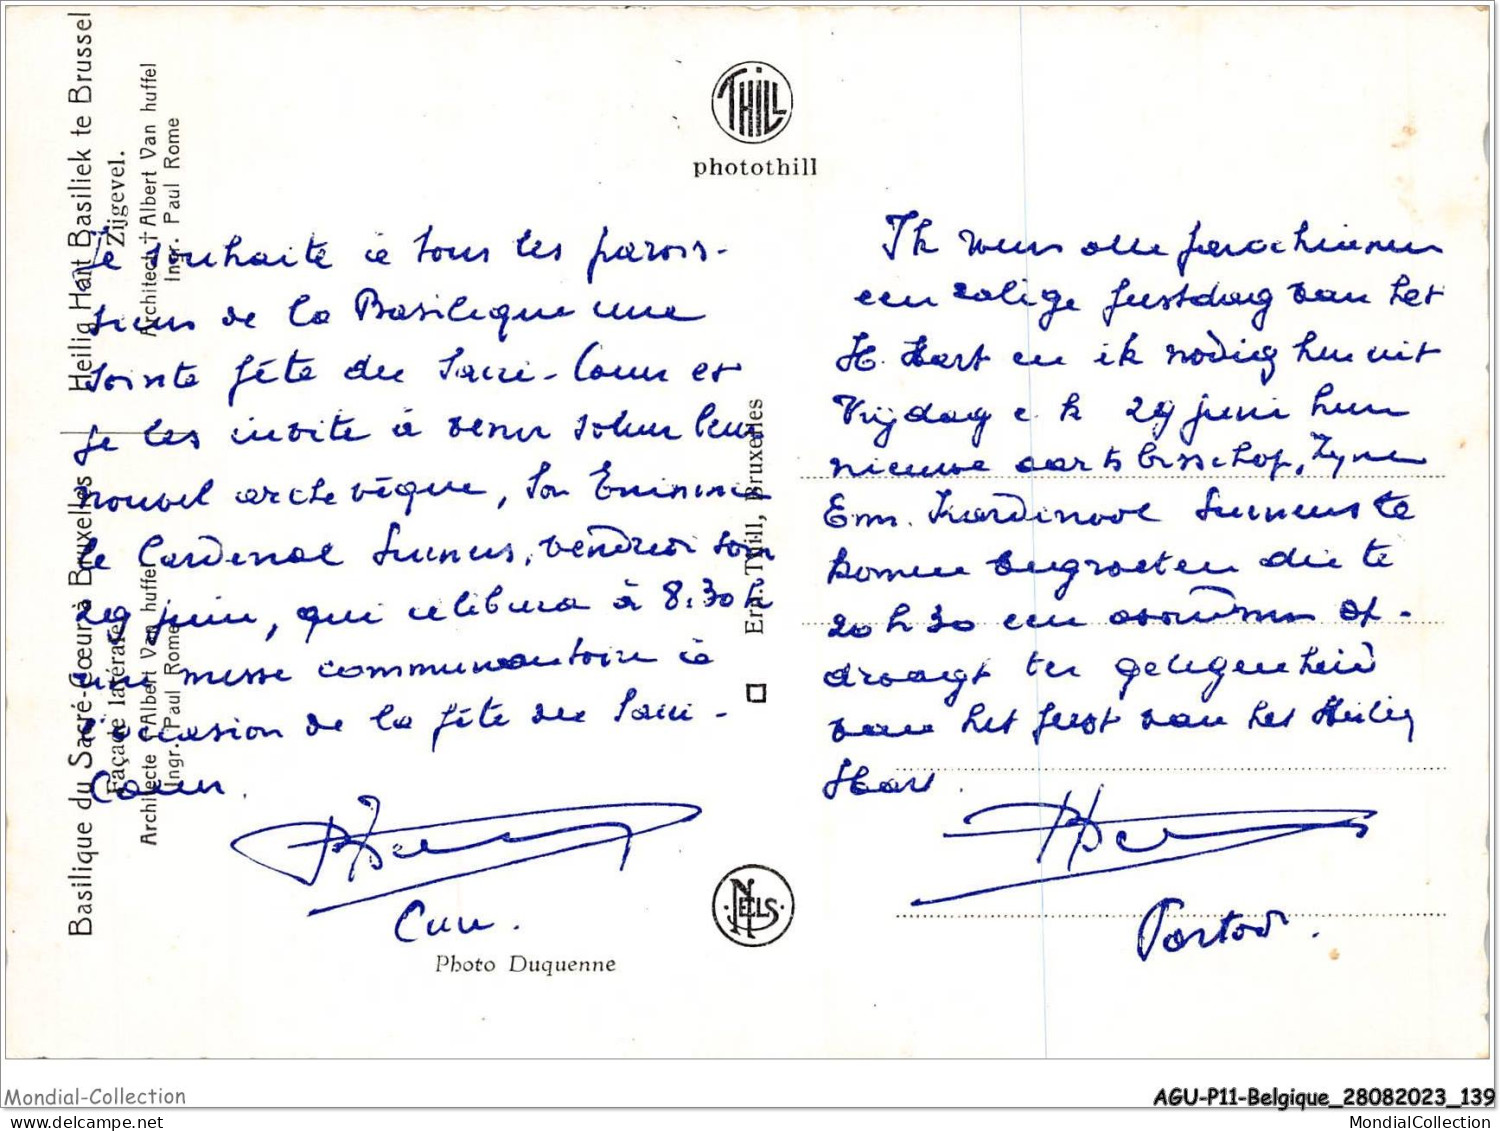 THILL
photothill
Heilig Hart Basiliek te Brussel
Zijgevel.
Architect † Albert Van huffel
Ingr. Paul Rome
Basilique du Sacré-Cœur à Bruxelles
Façade latérale
Architecte † Albert Van huffel
Ingr. Paul Rome
Je souhaite à tous les parois-
siens de la Basilique une
sainte fête du Sacré-Cœur et
je les invite à venir saluer leur
nouvel archevêque, Son Eminence
le Cardinal Suenens, vendredi soir
29 juin, qui célébrera à 8.30 h
une messe communautaire à
l'occasion de la fête du Sacré-
Cœur.
Curé.
Photo Duquenne
Ern. Thill, Bruxelles
NELS
Ik wens alle parochianen
een zalige feestdag van het
H. Hart en ik nodig hen uit
Vrijdag e. k. 29 juni hun
nieuwe aartsbisschop, Zijne
Em. Kardinaal Suenens te
komen begroeten die te
20 h 30 een avondmis op-
draagt ter gelegenheid
van het feest van het Heilig
Hart.
Pastoor.
Mondial-Collection
AGU-P11-Belgique_28082023_139
MondialCollection